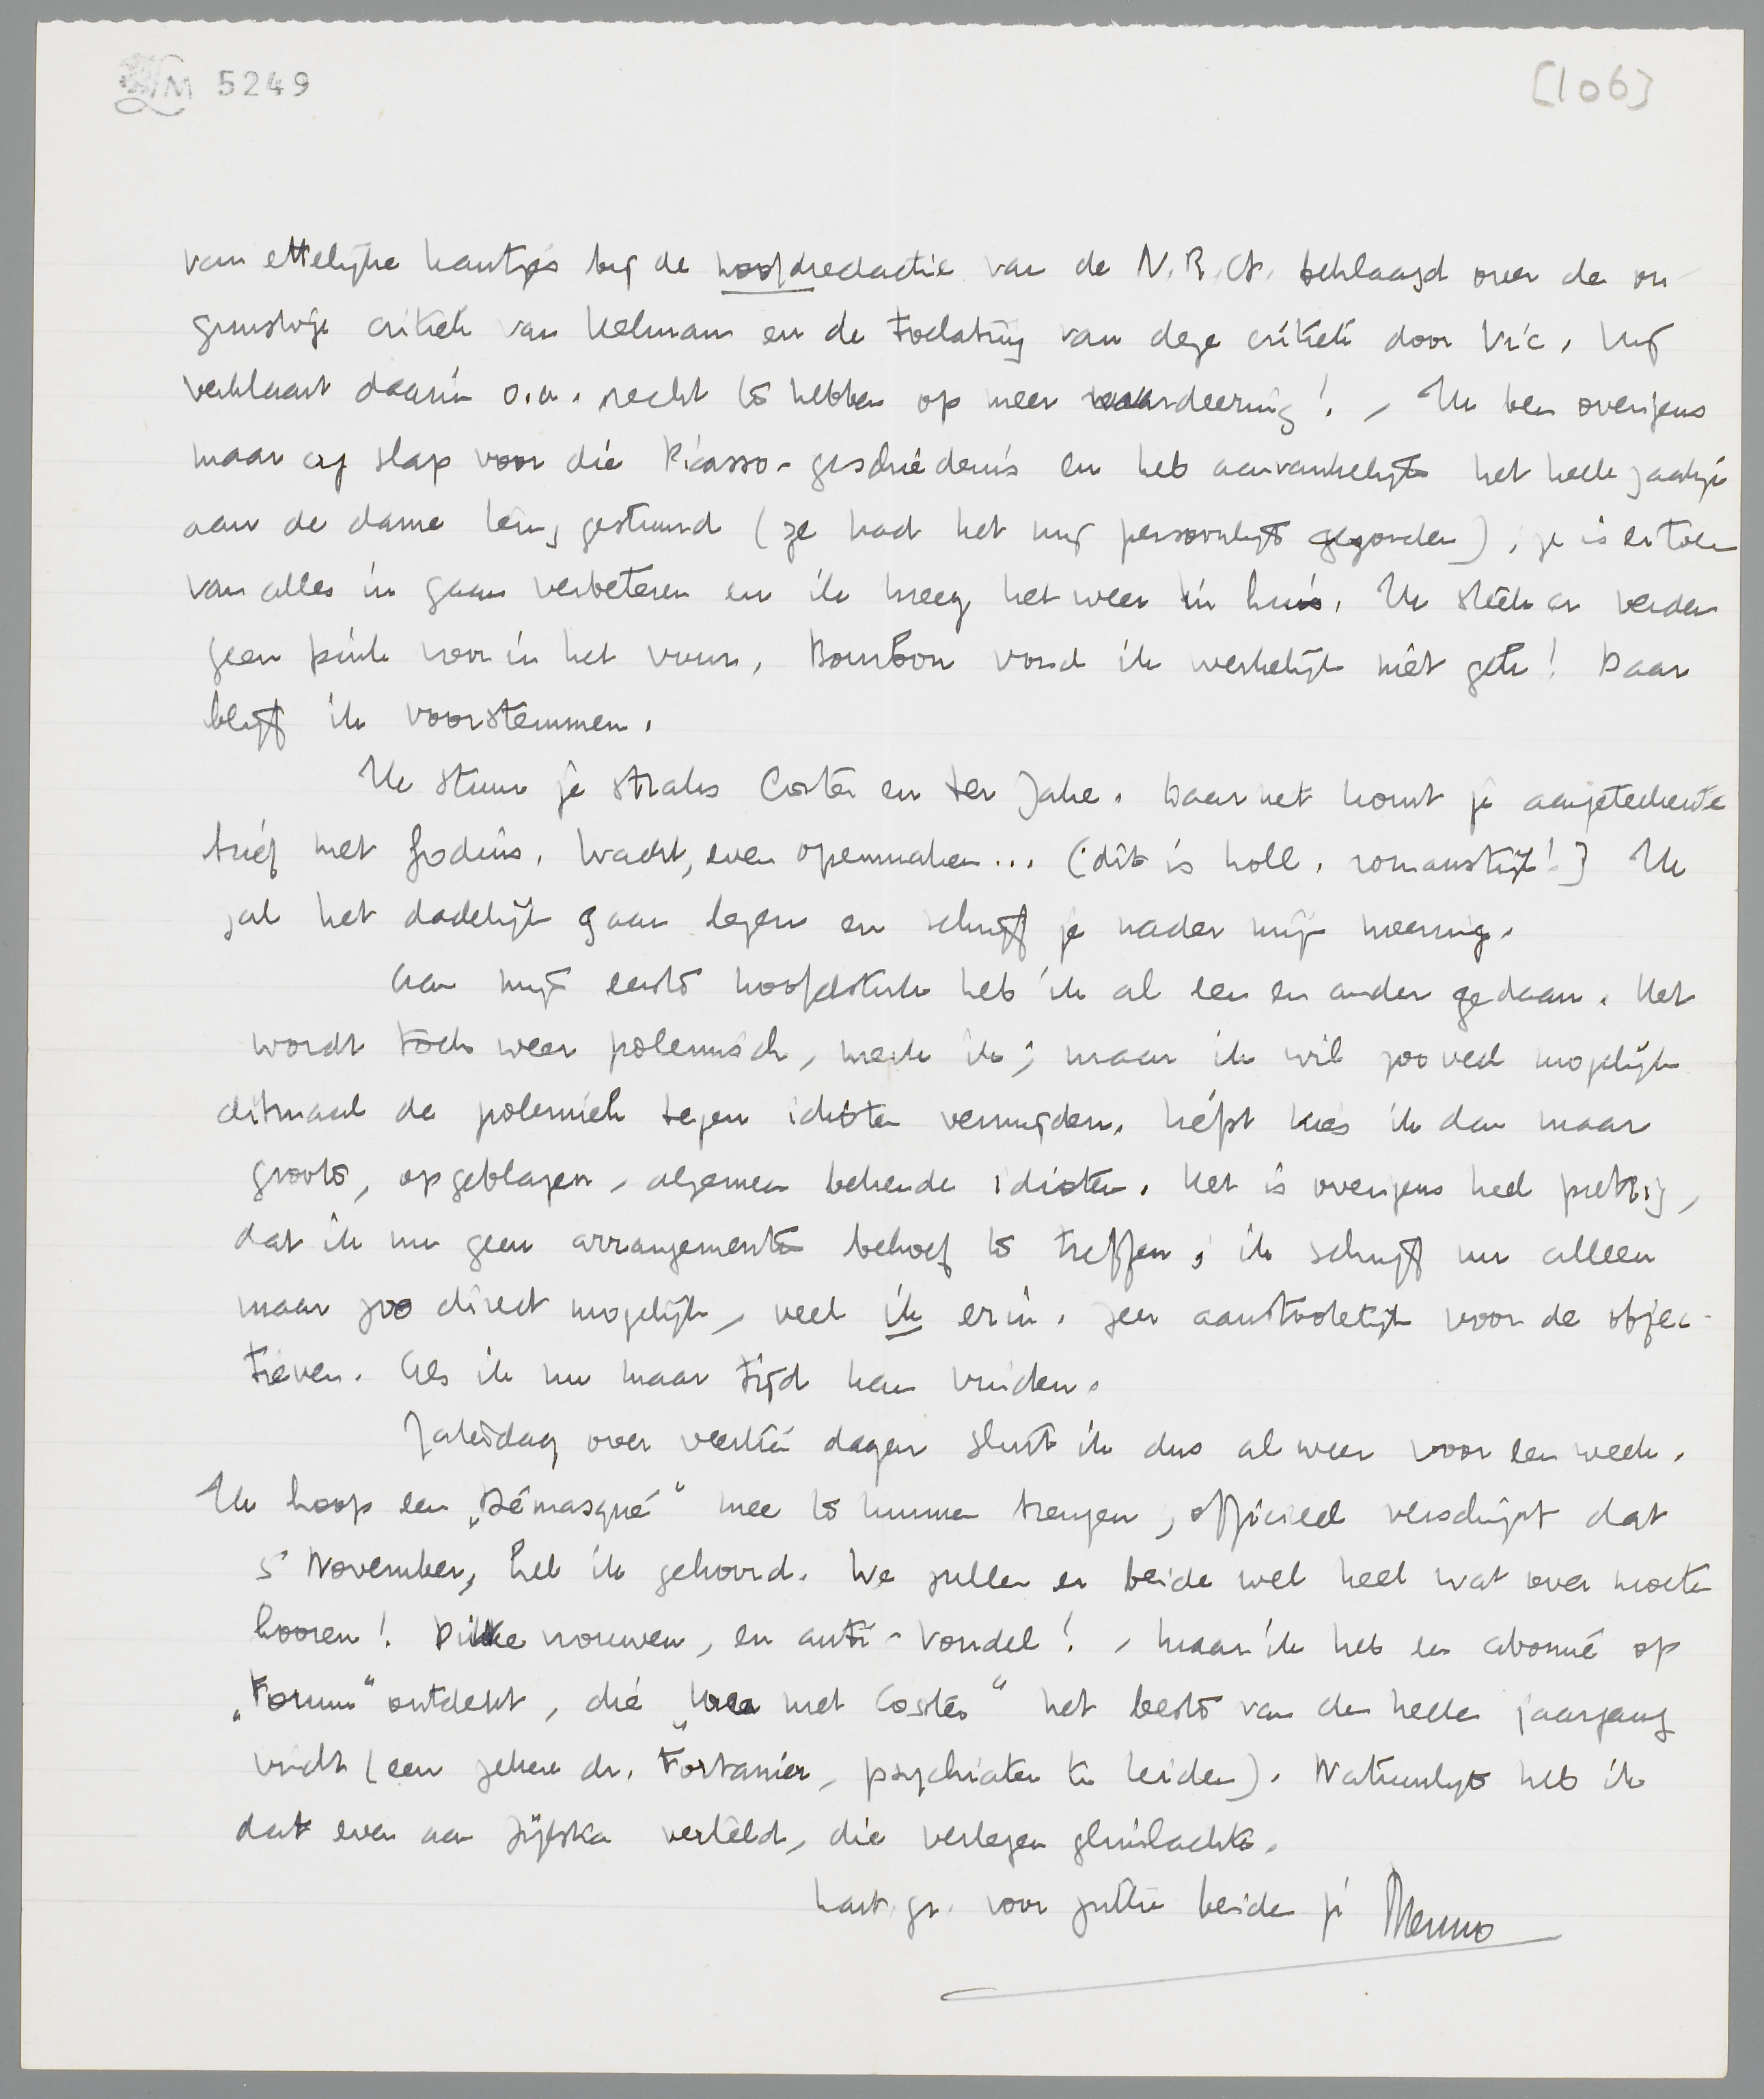 LM 5249
[106]
van ettelijke kantjes bij de hoofdredactie van de N.R.Ct. beklaagd over de on-
gunstige critiek van Helman en de toelating van deze critiek door Vic. Hij
verklaart daarin o.a. recht te hebben op meer waardeering! - Ik ben overigens
maar erg slap voor die Picasso-geschiedenis en heb aanvankelijk het heele zaakje
aan de dame terug gestuurd (ze had het mij persoonlijk gezonden); ze is er toen
van alles in gaan verbeteren en ik kreeg het weer in huis. Ik steek er verder
geen pink voor in het vuur. Bourbon vond ik werkelijk niet gek! Daar
blijf ik voorstemmen.
Ik stuur je straks Coster en ter Jake. Daarnet komt je aangeteekende
brief met Godius. Wacht, even openmaken... (dit is holl. romanstijl!) Ik
zal het dadelijk gaan lezen en schrijf je nader mijn meening.
Aan mijn eerste hoofdstuk heb ik al een en ander gedaan. Het
wordt toch weer polemisch, merk ik; maar ik wil zooveel mogelijk
ditmaal de polemiek tegen idioten vermijden. Liefst kies ik dan maar
groote, opgeblazen, algemeen bekende idioten. Het is overigens heel prettig,
dat ik nu geen arrangementen behoef te treffen; ik schrijf nu alleen
maar zoo direct mogelijk, veel ik erin. Zeer aanstootelijk voor de objec-
tieven. Als ik nu maar tijd kan vinden.
Zaterdag over veertien dagen sluit ik dus al weer voor een week.
Ik hoop een „Démasqué" mee te kunnen brengen; officieel verschijnt dat
5 November, heb ik gehoord. We zullen er beide wel heel wat over moeten
hooren! Dikke vrouwen, en anti-Vondel! - Maar ik heb een abonné op
„Forum" ontdekt, die „Uren met Coster" het beste van den heelen jaargang
vindt (een zekere dr. Fortanier, psychiater te Leiden). Natuurlijk heb ik
dat even aan Zijlstra verteld, die verlegen glimlachte.
hart. gr. voor jullie beiden je Menno